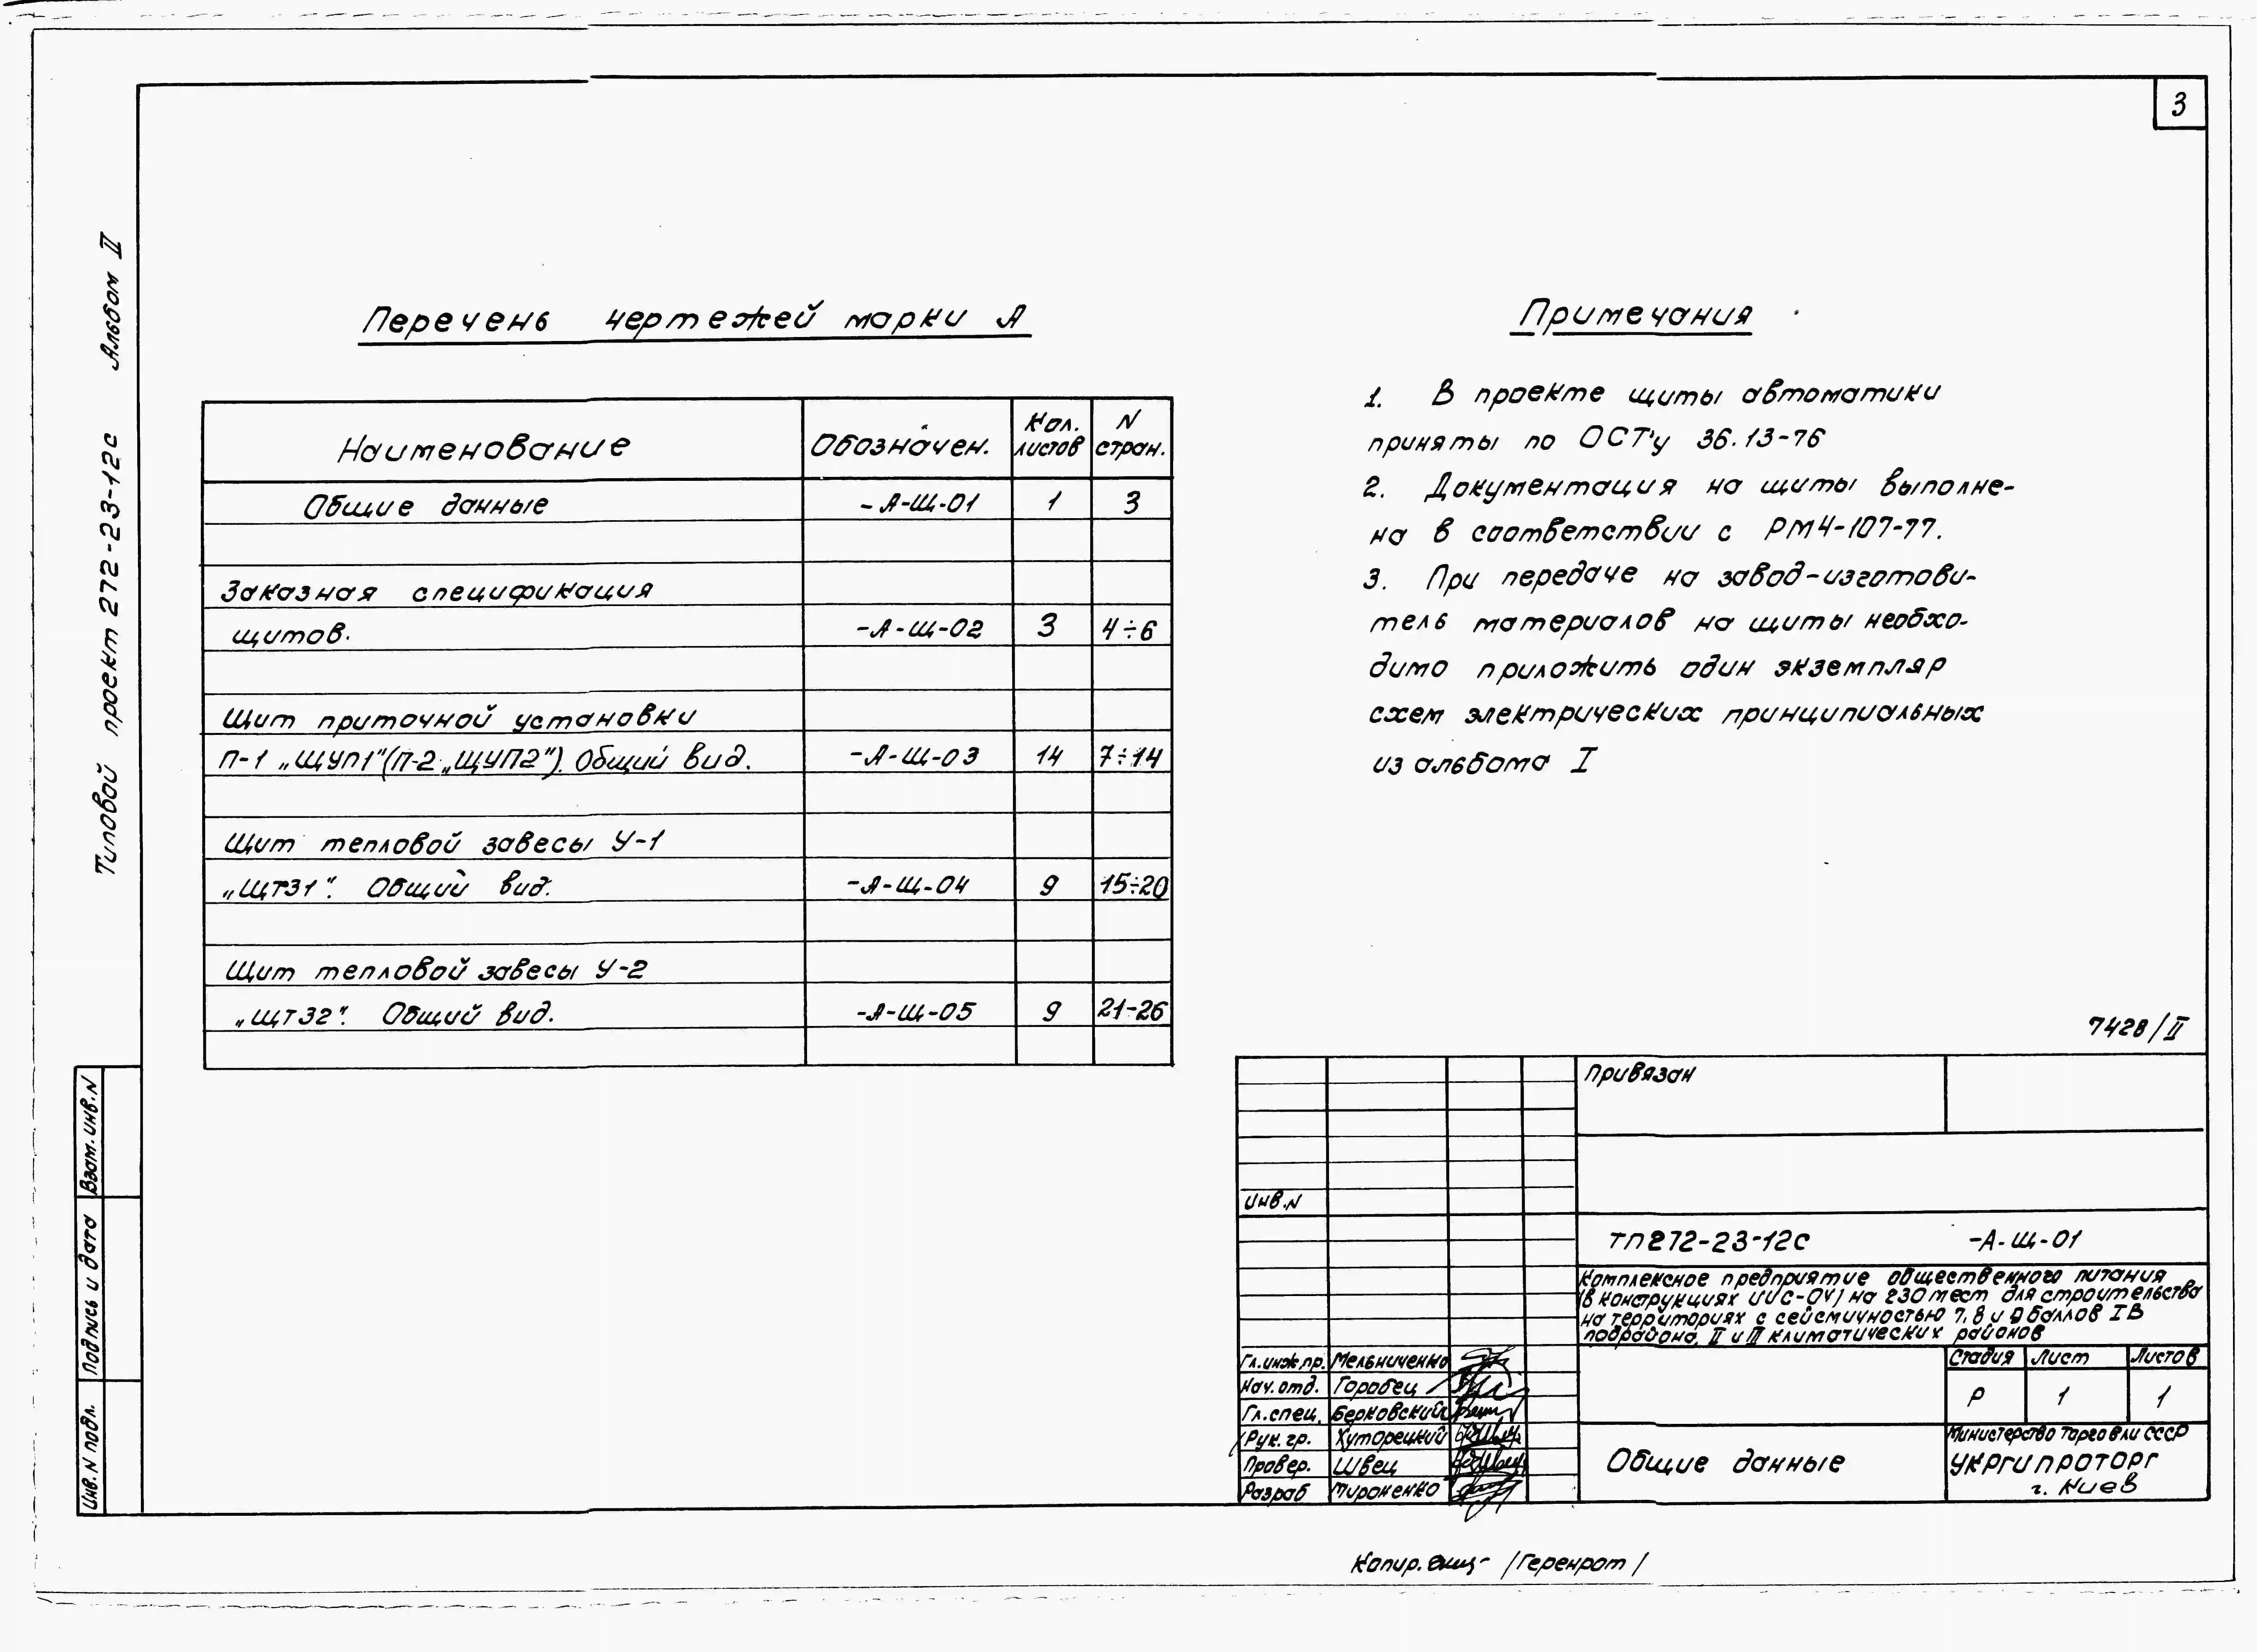 3
Типовой проект 272-23-12с Альбом II
Перечень чертежей марки А
Наименование Обозначен. Кол. листов N стран.
Общие данные -А-Щ-01 1 3
Заказная спецификация
щитов. -А-Щ-02 3 4÷6
Щит приточной установки
П-1 „ЩУП1"(П-2 „ЩУП2"). Общий вид. -А-Щ-03 14 7÷14
Щит тепловой завесы У-1
„ЩТЗ1". Общий вид. -А-Щ-04 9 15÷20
Щит тепловой завесы У-2
„ЩТЗ2". Общий вид. -А-Щ-05 9 21-26
Примечания
1. В проекте щиты автоматики
приняты по ОСТ'у 36.13-76
2. Документация на щиты выполне-
на в соответствии с РМ4-107-77.
3. При передаче на завод-изготови-
тель материалов на щиты необхо-
димо приложить один экземпляр
схем электрических принципиальных
из альбома I
7428/II
Привязан
Инв.N
ТП272-23-12с -А-Щ-01
Комплексное предприятие общественного питания
(в конструкциях ИИС-04) на 230 мест для строительства
на территориях с сейсмичностью 7, 8 и 9 баллов IВ
подрайона, II и III климатических районов
Гл.инж.пр. Мельниченко
Нач.отд. Горобец
Гл.спец. Берковский
Рук.гр. Хуторецкий
Провер. Швец
Разраб Мироненко
Стадия Лист Листов
Р 1 1
Общие данные
Министерство Торговли СССР
УКРГИПРОТОРГ
г. Киев
Взам.инв.N
Подпись и дата
Инв.N подл.
Копир. /Геренрот/